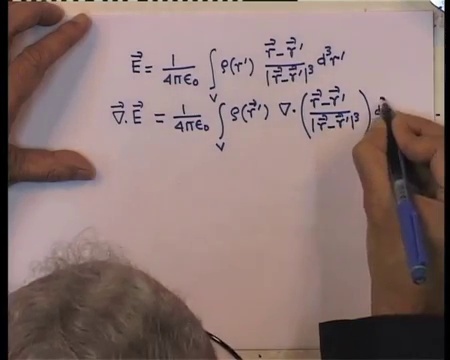 \vec{E} = \frac{1}{4\pi\epsilon_0} \int_V \rho(r') \frac{\vec{r} - \vec{r}'}{|\vec{r} - \vec{r}'|^3} d^3r'
\vec{\nabla} \cdot \vec{E} = \frac{1}{4\pi\epsilon_0} \int_V \rho(\vec{r}') \nabla \cdot \left( \frac{\vec{r} - \vec{r}'}{|\vec{r} - \vec{r}'|^3} \right) d